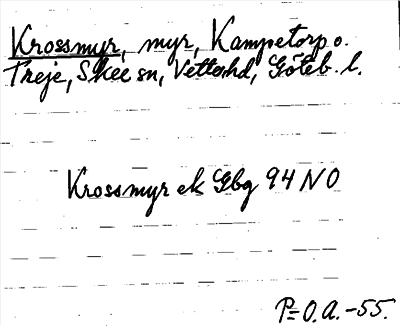 Krossmyr, myr, Kampetorp o.
Treje, Skee sn, Vette hd, Göteb. l.
Krossmyr ek Gbg 94 NO
P= O.A. -55.